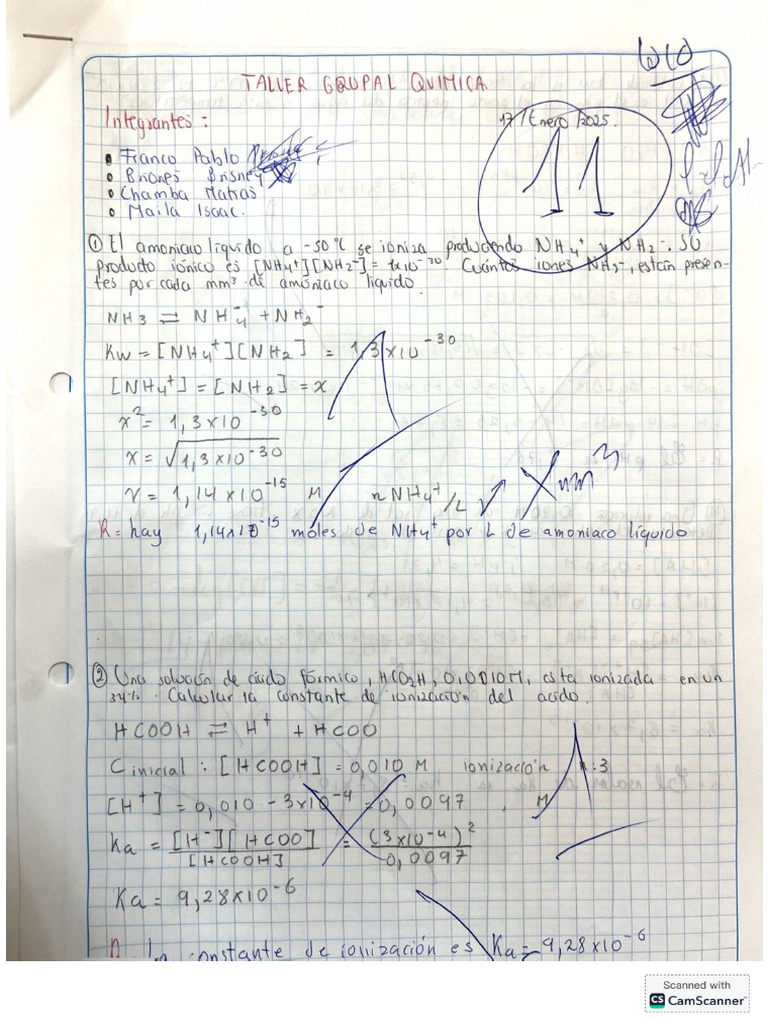 TALLER GRUPAL QUIMICA
Integrantes:
17/Enero/2025.
11
• Franco Pablo
• Briones Brisney
• Chamba Matias
• Maila Isaac.
① El amoniaco liquido a -50°C se ioniza produciendo NH4+ y NH2-. SU
producto iónico es [NH4+][NH2-]= 1x10-30. Cuántos iones NH2-, están presen-
tes por cada mm3 de amoniaco liquido.
NH3 ⇌ NH4- + NH2-
Kw = [NH4+][NH2] = 1,3x10-30
[NH4+] = [NH2] = x
x2 = 1,3x10-30
x = √1,3x10-30
x = 1,14x10-15 M
n NH4+/L
X mm3
R= hay 1,14x10-15 moles de NH4+ por L de amoniaco líquido
② Una solución de ácido fórmico, HCO2H, 0,0010M, esta ionizada en un
34%. Calcular la constante de ionización del acido.
HCOOH ⇌ H+ + HCOO
C inicial : [HCOOH] = 0,010 M ionización :3
[H+] = 0,010 - 3x10-4 = 0,0097 M
Ka = [H-][HCOO] / [HCOOH] = (3x10-4)2 / 0,0097
Ka = 9,28x10-6
R. la constante de ionización es Ka = 9,28x10-6
Scanned with
CS CamScanner